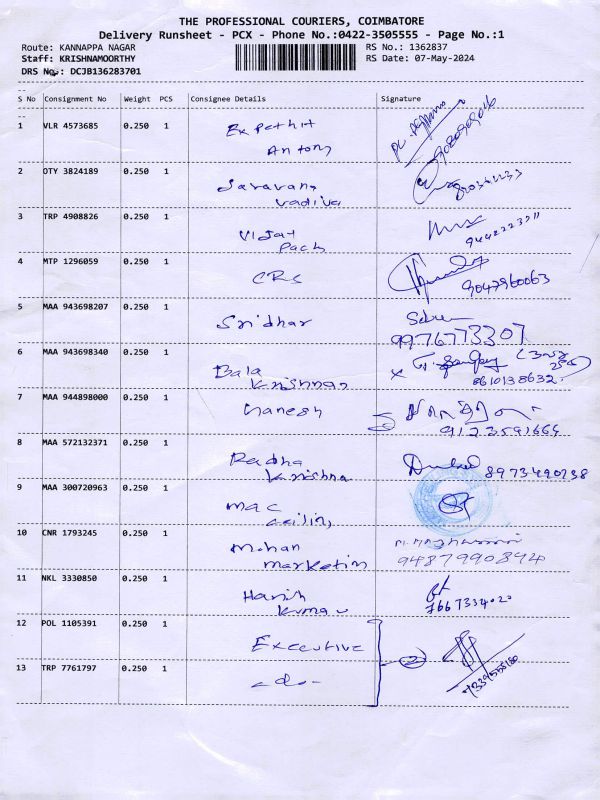 THE PROFESSIONAL COURIERS, COIMBATORE
Delivery Runsheet - PCX - Phone No.:0422-3505555 - Page No.:1
Route: KANNAPPA NAGAR RS No.: 1362837
Staff: KRISHNAMOORTHY RS Date: 07-May-2024
DRS No.: DCJB136283701
S No Consignment No Weight PCS Consignee Details Signature
1 VLR 4573685 0.250 1
Antony
2 OTY 3824189 0.250 1 Saravana
Vadivu
3 TRP 4908826 0.250 1 Vijay
Pack
9442223311
4 MTP 1296059 0.250 1 CRS
9047960063
5 MAA 943698207 0.250 1 Sridhar
9976773307
6 MAA 943698340 0.250 1 Bala
Krishnan
8610138632
7 MAA 944898000 0.250 1 Ganesh
9123591664
8 MAA 572132371 0.250 1 Radha
Krishna
8973490238
9 MAA 300720963 0.250 1 Mac
10 CNR 1793245 0.250 1 Mohan
Marketing
9487990894
11 NKL 3330850 0.250 1 Harish
Kumar
7667334020
12 POL 1105391 0.250 1 Executive
13 TRP 7761797 0.250 1 -do-
2